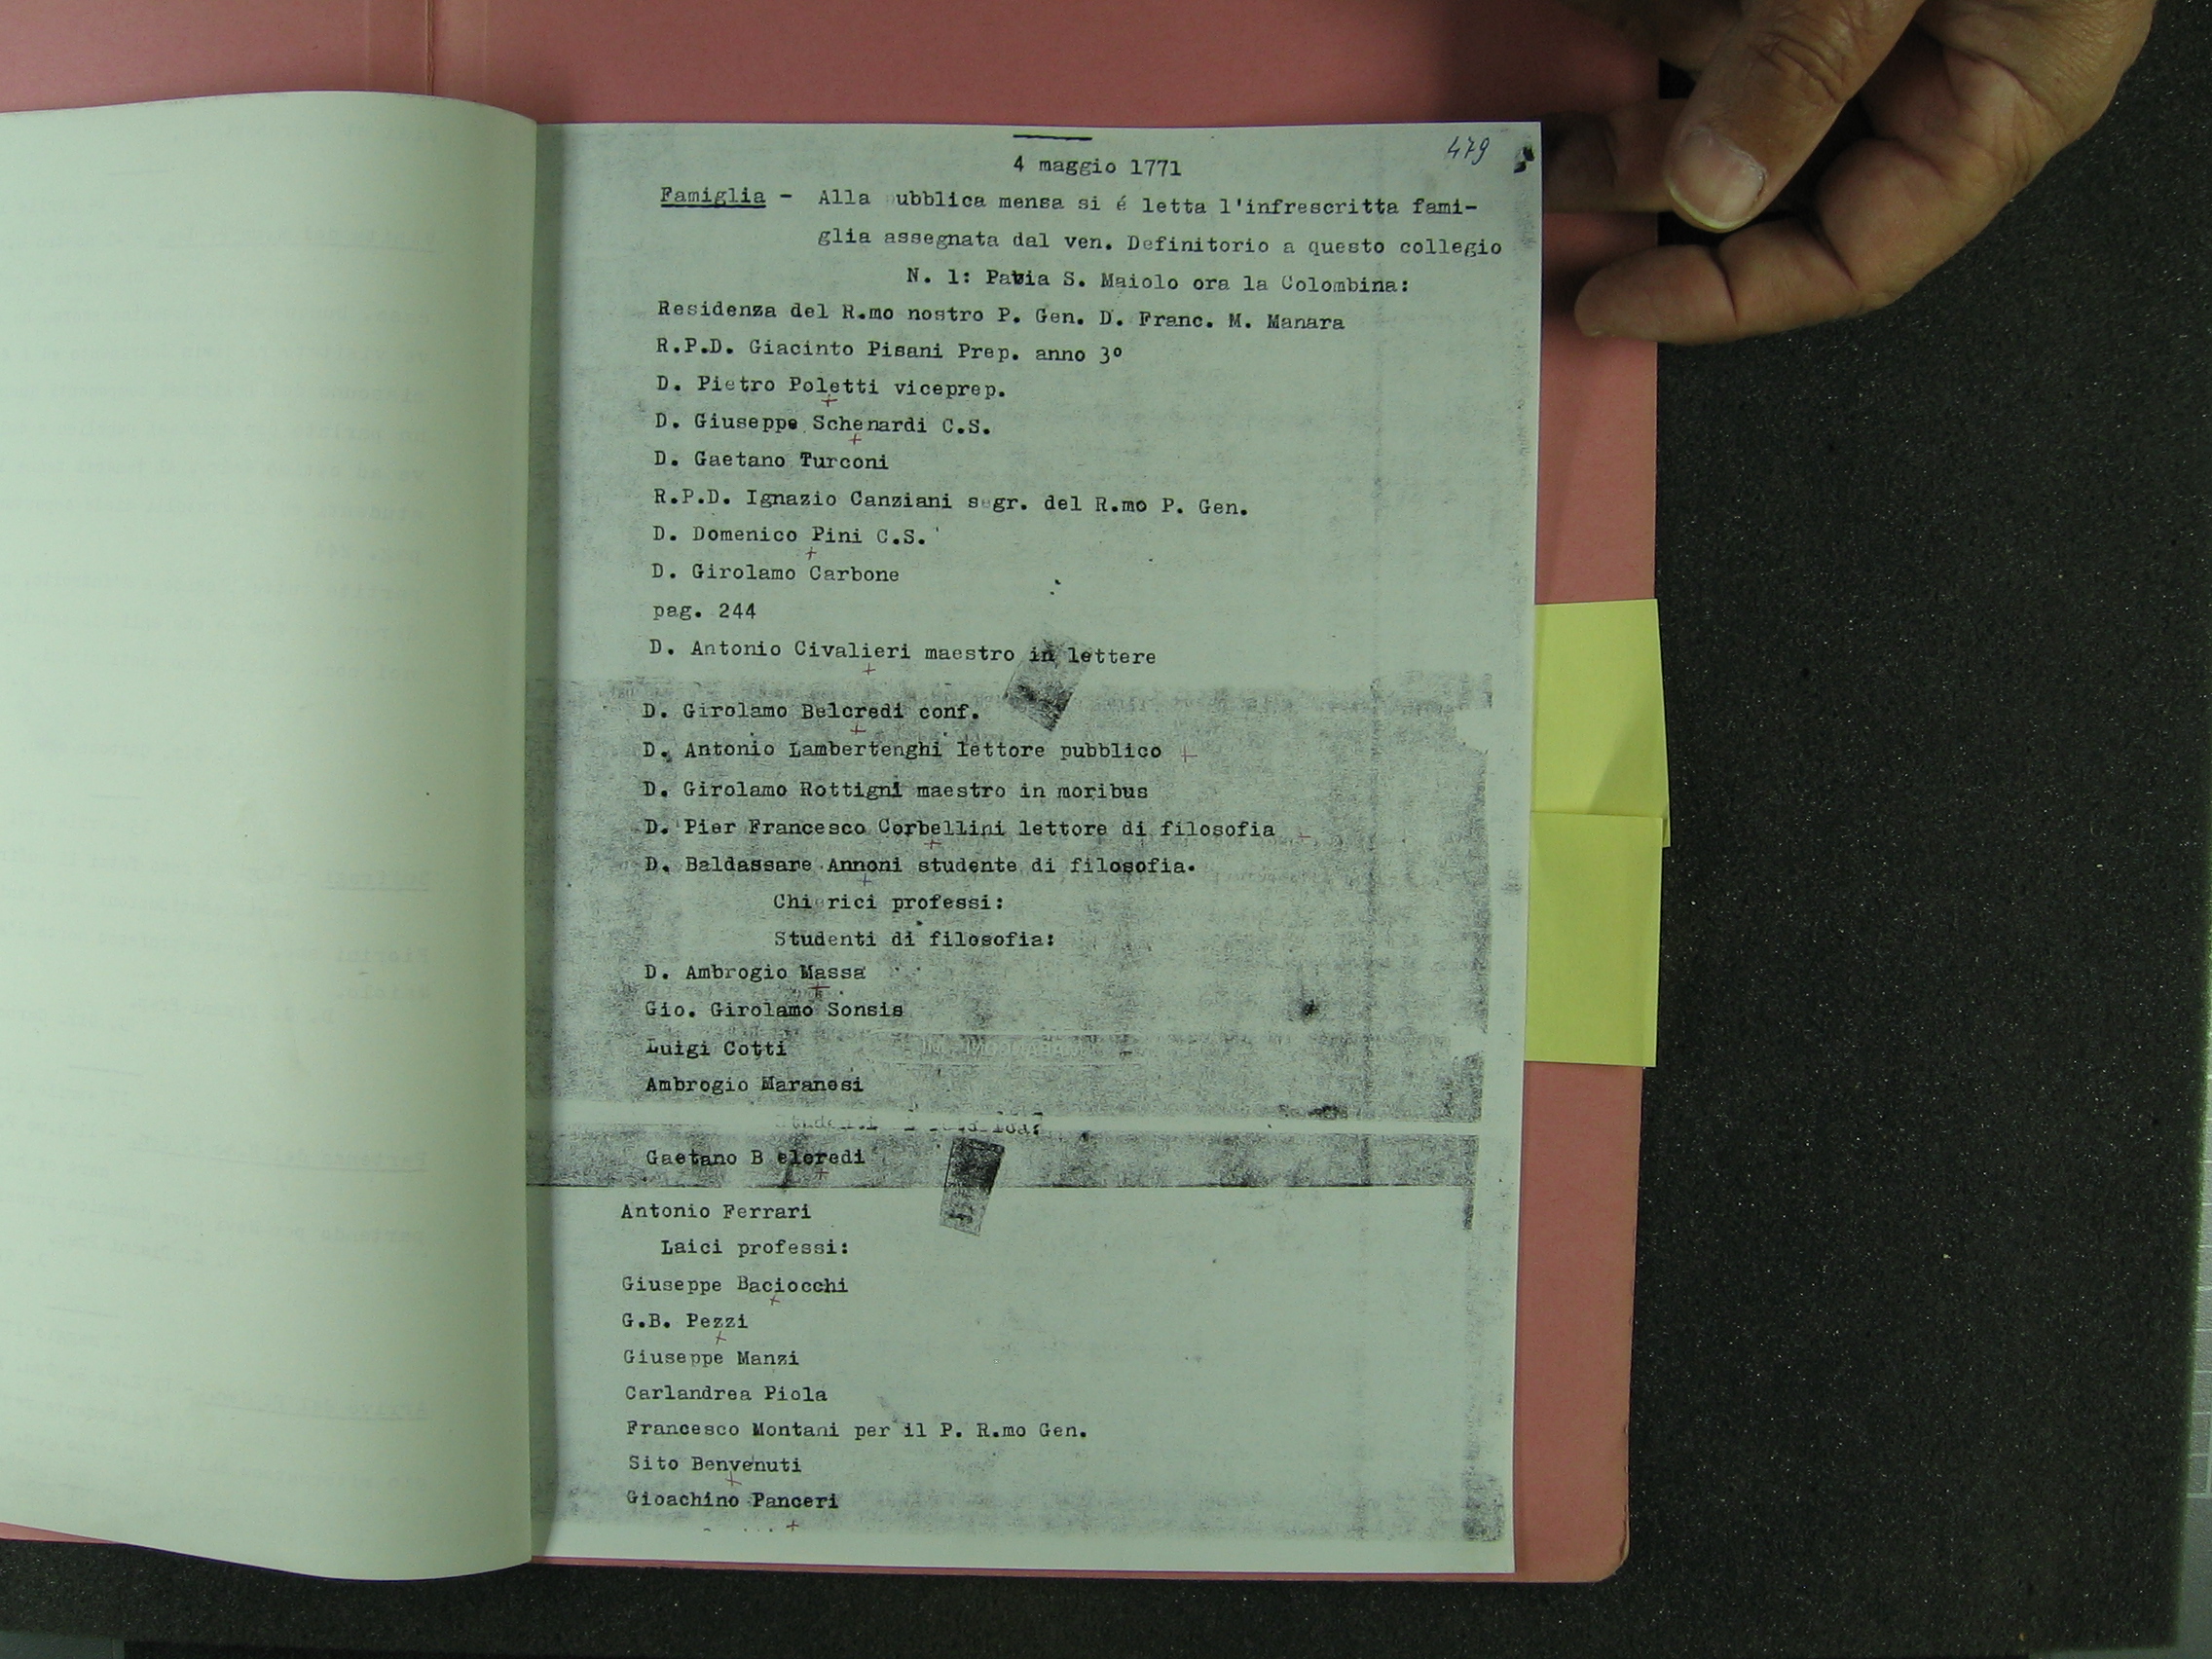 479
4 maggio 1771
Famiglia - Alla ubblica mensa si é letta l'infrescritta fami-
glia assegnata dal ven. Definitorio a questo collegio
N. 1: Pavia S. Maiolo ora la Colombina:
Residenza del R.mo nostro P. Gen. D. Franc. M. Manara
R.P.D. Giacinto Pisani Prep. anno 3º
D. Pietro Poletti viceprep.
D. Giuseppe Schenardi C.S.
D. Gaetano Turconi
R.P.D. Ignazio Canziani segr. del R.mo P. Gen.
D. Domenico Pini C.S.
D. Girolamo Carbone
pag. 244
D. Antonio Civalieri maestro in lettere
D. Girolamo Belcredi conf.
D. Antonio Lambertenghi lettore pubblico
D. Girolamo Rottigni maestro in moribus
D. Pier Francesco Corbellini lettore di filosofia
D. Baldassare Annoni studente di filosofia.
Chierici professi:
Studenti di filosofia:
D. Ambrogio Massa
Gio. Girolamo Sonsis
Luigi Cotti
Ambrogio Maranesi
Gaetano B elcredi
Antonio Ferrari
Laici professi:
Giuseppe Baciocchi
G.B. Pezzi
Giuseppe Manzi
Carlandrea Piola
Francesco Montani per il P. R.mo Gen.
Sito Benvenuti
Gioachino Panceri